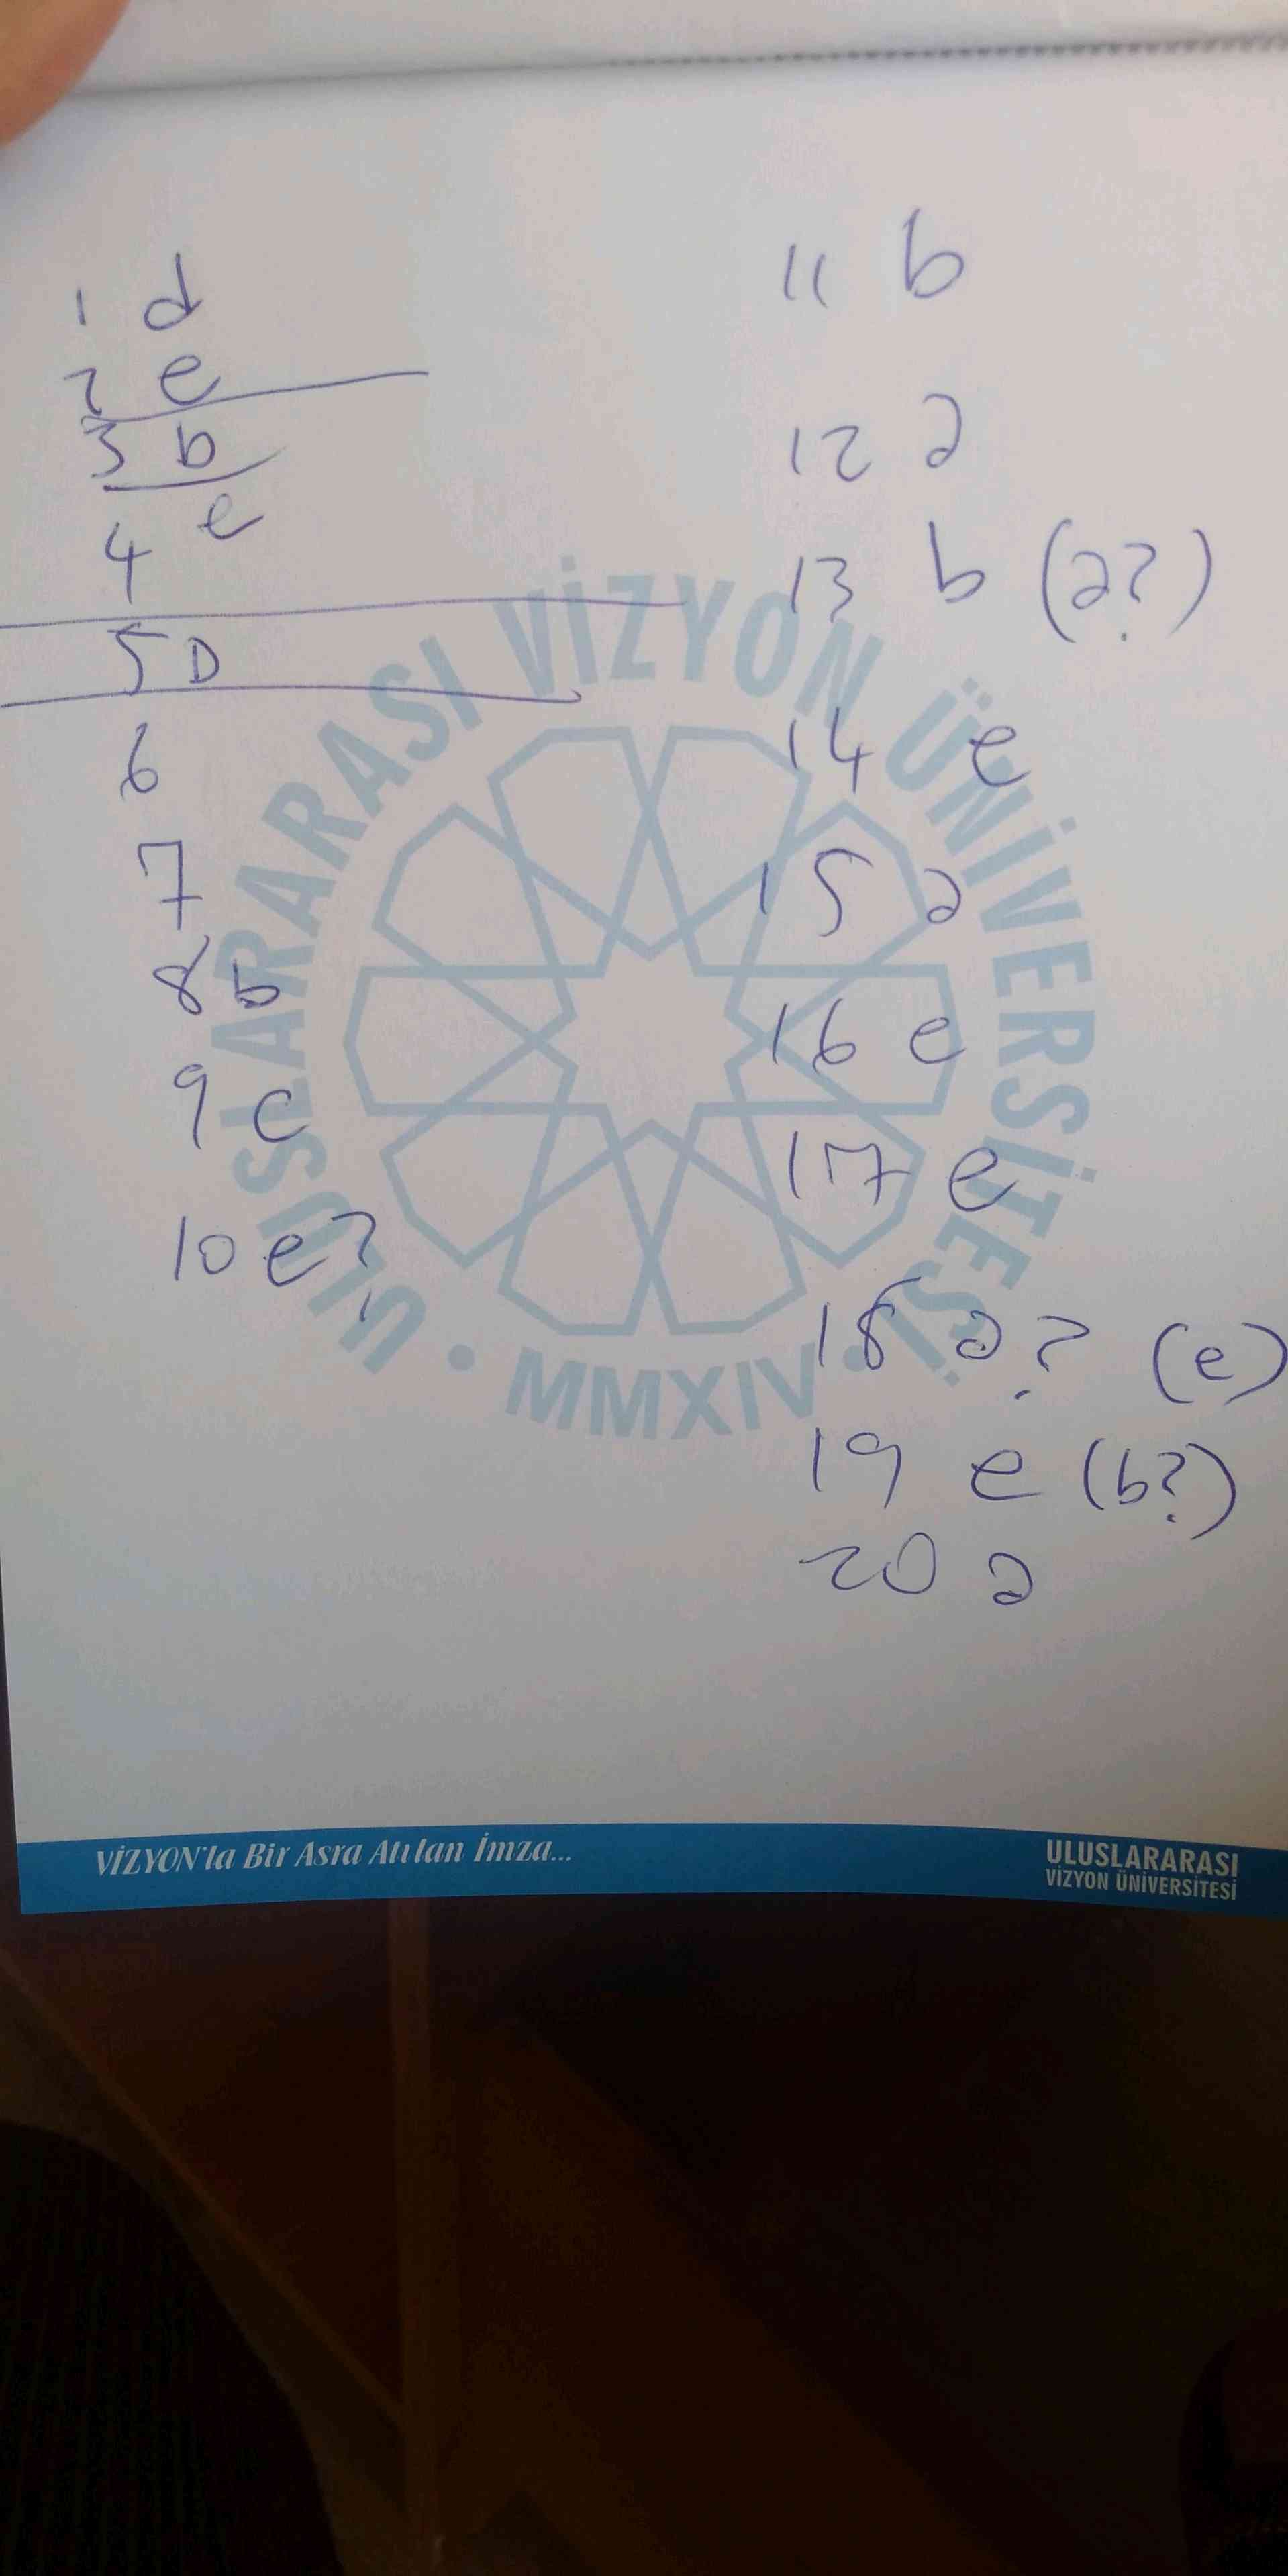 1 d
2 e
3 b
4 e
5 D
6
7
8 b
9 c
10 e?
11 b
12 a
13 b (a?)
14 e
15 a
16 e
17 e
18 a? (e)
19 e (b?)
20 a
ULUSLARARASI VİZYON ÜNİVERSİTESİ • MMXIV •
VİZYON'la Bir Asra Atılan İmza...
ULUSLARARASI
VİZYON ÜNİVERSİTESİ